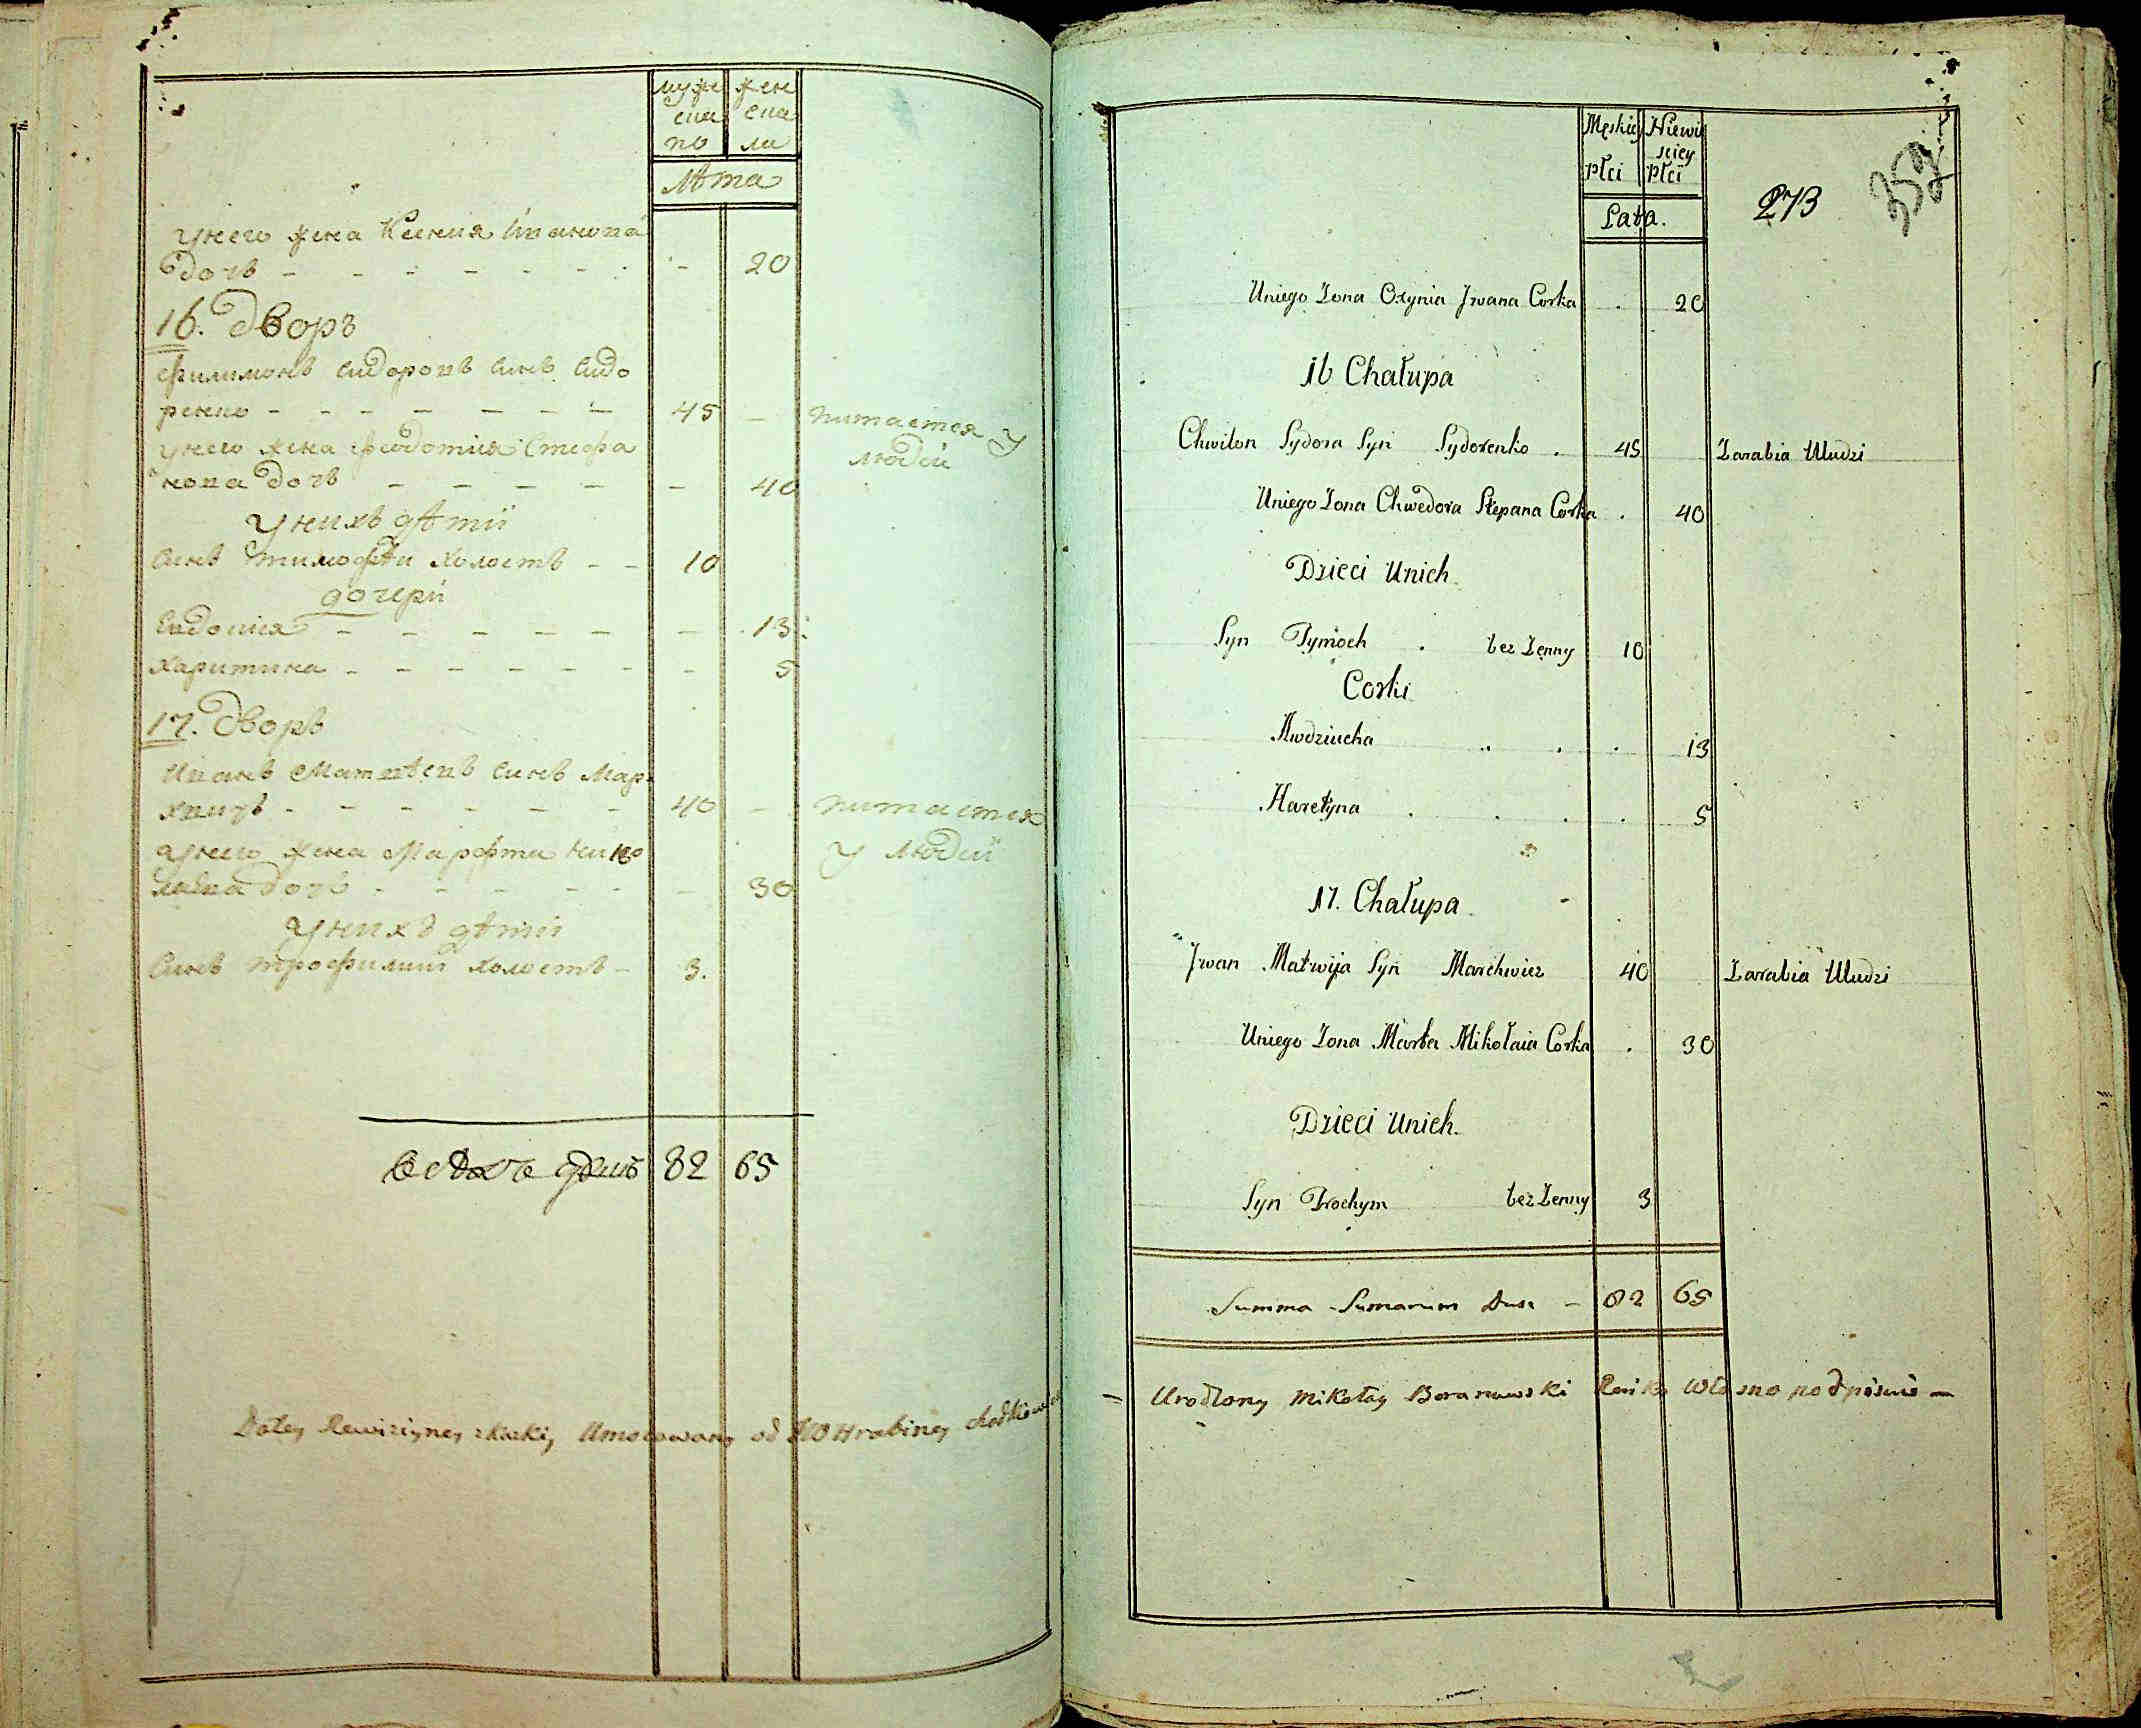 муже
ска
го
жен
ска
ла
лѣта
у него жена Ксения Иванова
дочь - - - - - - - 20
16. дворъ
Филимонъ Сидоровъ Синъ Сидо
ренко - - - - - - 45 - питается у
людей
у него жена Феодотия Стефа
нова дочь - - - - - 40
у нихъ дѣти
Синъ тимофѣй холостъ - - 10
дочери
Евдокия - - - - - - 13
Харитина - - - - - - - 5
17. дворъ
Иванъ Матвѣевъ Синъ Мар-
хвичъ - - - - - - 40 - питается
у людей
у него жена Марфта Нико
лаева дочь - - - - - - 30
у нихъ дѣти
Синъ трофимий холостъ - 3.
всѣхъ душъ 82 65
Dotey Rewizyney skazki, Umocowany od JW Hrabiney Chodkiewi
Męskiey
Płci
Niewi
sciey
Płci
Lata.
273
Uniego Zona Oxynia Jwana Corka . 20
16 Chałupa
Chwilon Sydora Syn Sydorenko . 45 Zarabia Uludzi
Uniego Zona Chwedora Stepana Corka . 40
Dzieci Unich.
Syn Tymoch . bez Zenny 10
Corki
Awdziucha . . . 13
Haretyna . . . . 5
17. Chałupa
Jwan Matwija Syn Marchwicz 40 Zarabia Uludzi
Uniego Zona Marta Mikołaia Corka . 30
Dzieci Unich.
Syn Trochym bez Zenny 3
Summa Sumarum Dusz - 82 65
Urodzony Mikołay Baranowski Ręiką Własno podpisuie -